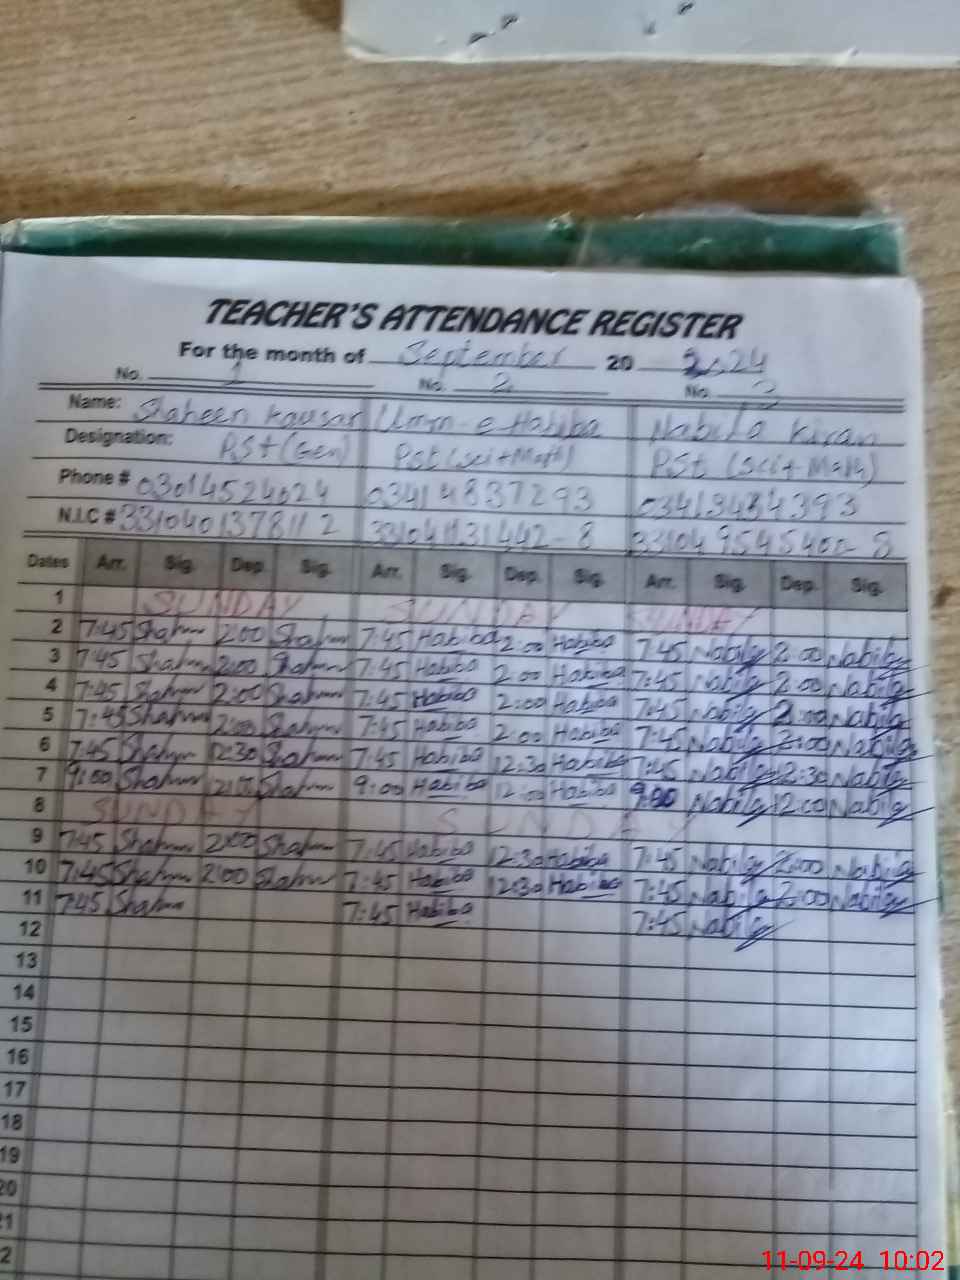 TEACHER'S ATTENDANCE REGISTER
For the month of September 20 2024
No. 1 No. 2 No. 3
Name: Shaheen Kausar Umm-e-Habiba Nabila Kiran
Designation: PSt (Gen) Pst (sci+Math) PSt (Sci+Math)
Phone # 03014524024 03414837293 03413484393
N.I.C # 3310401378112 331041131442-8 331049545400-8
Dates Arr. Sig. Dep. Sig. Arr. Sig. Dep. Sig. Arr. Sig. Dep. Sig.
1 SUNDAY SUNDAY SUNDAY
2 7:45 Shahm 2:00 Shahm 7:45 Habiba 2:00 Habiba 7:45 Nabila 2:00 Nabila
3 7:45 Shahm 2:00 Shahm 7:45 Habiba 2:00 Habiba 7:45 Nabila 2:00 Nabila
4 7:45 Shahm 2:00 Shahm 7:45 Habiba 2:00 Habiba 7:45 Nabila 2:00 Nabila
5 7:45 Shahm 2:00 Shahm 7:45 Habiba 2:00 Habiba 7:45 Nabila 2:00 Nabila
6 7:45 Shahm 12:30 Shahm 7:45 Habiba 12:30 Habiba 7:45 Nabila 12:30 Nabila
7 9:00 Shahm 12:00 Shahm 9:00 Habiba 12:00 Habiba 9:00 Nabila 12:00 Nabila
8 SUNDAY SUNDAY
9 7:45 Shahm 2:00 Shahm 7:45 Habiba 12:30 Habiba 7:45 Nabila 2:00 Nabila
10 7:45 Shahm 2:00 Shahm 7:45 Habiba 12:30 Habiba 7:45 Nabila 2:00 Nabila
11 7:45 Shahm 7:45 Habiba 7:45 Nabila
12
13
14
15
16
17
18
19
20
21
2
11-09-24 10:02